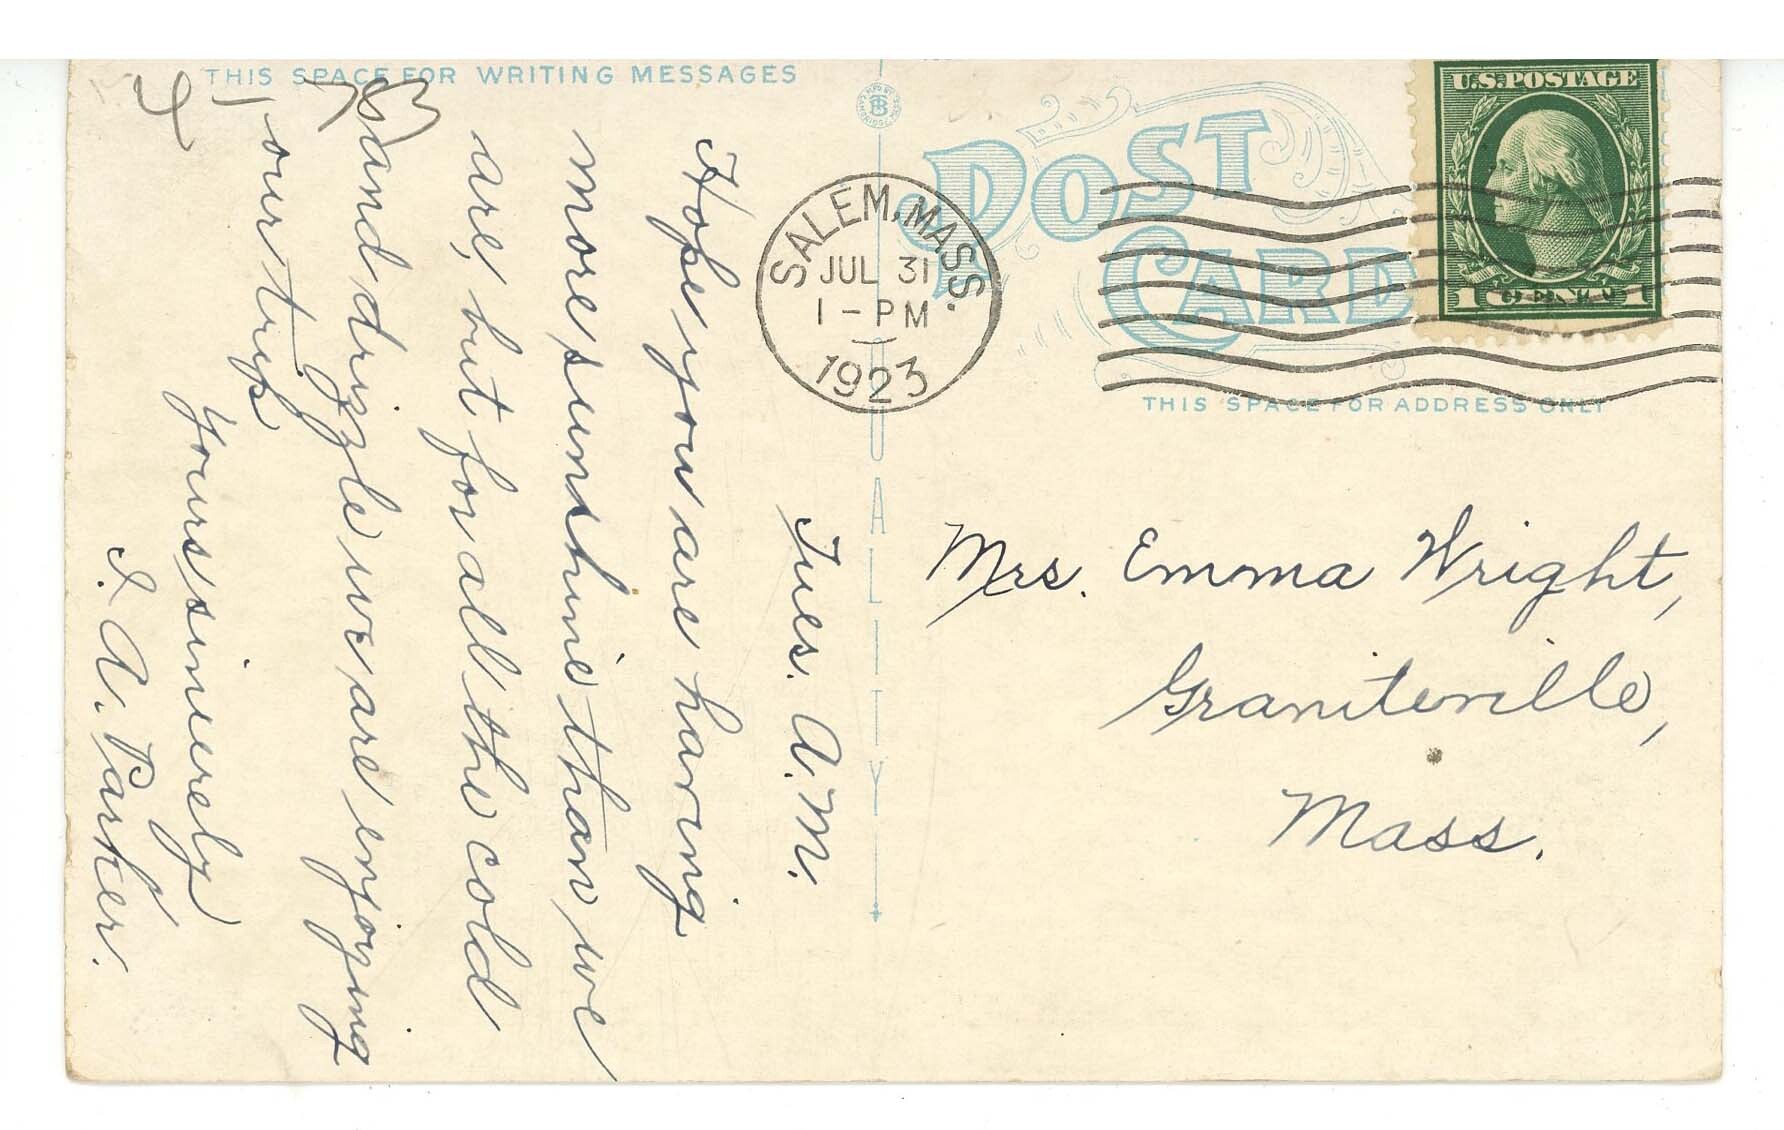 THIS SPACE FOR WRITING MESSAGES
Tues. A.M.
Hope you are having
more sunshine than we
are, but for all the cold
and drizzle we are enjoying
our trip
Yours sincerely
I. A. Parker.
QUALITY
POST
CARD
SALEM, MASS.
JUL 31
1 - PM
1923
U.S. POSTAGE
1 CENT 1
THIS SPACE FOR ADDRESS ONLY
Mrs. Emma Wright,
Graniteville,
Mass.